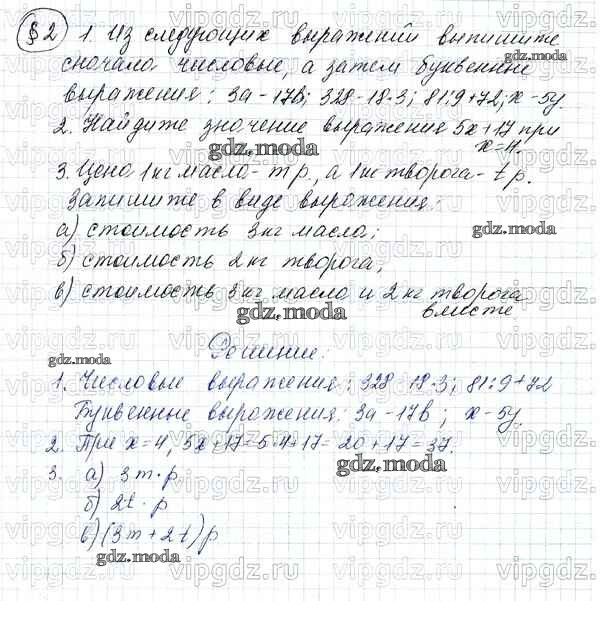 §2 1. Из следующих выражений выпишите
сначала числовые, а затем буквенные
выражения: 3а-17в; 328-18·3; 81:9+72; х-5у.
2. Найдите значение выражения 5х+17 при
х=4.
gdz.moda
3. Цена 1кг масла- m р., а 1кг творога- t р.
Запишите в виде выражения:
а) стоимость 3кг масла;
gdz.moda
б) стоимость 2кг творога;
в) стоимость 3кг масла и 2кг творога
вместе
gdz.moda
Решение:
gdz.moda
1. Числовые выражения: 328-18·3; 81:9+72
Буквенные выражения: 3а-17в; х-5у.
2. При х=4, 5х+17=5·4+17=20+17=37.
gdz.moda
3. а) 3m·р
б) 2t·р
в) (3m+2t)р
gdz.moda
vipgdz.ru